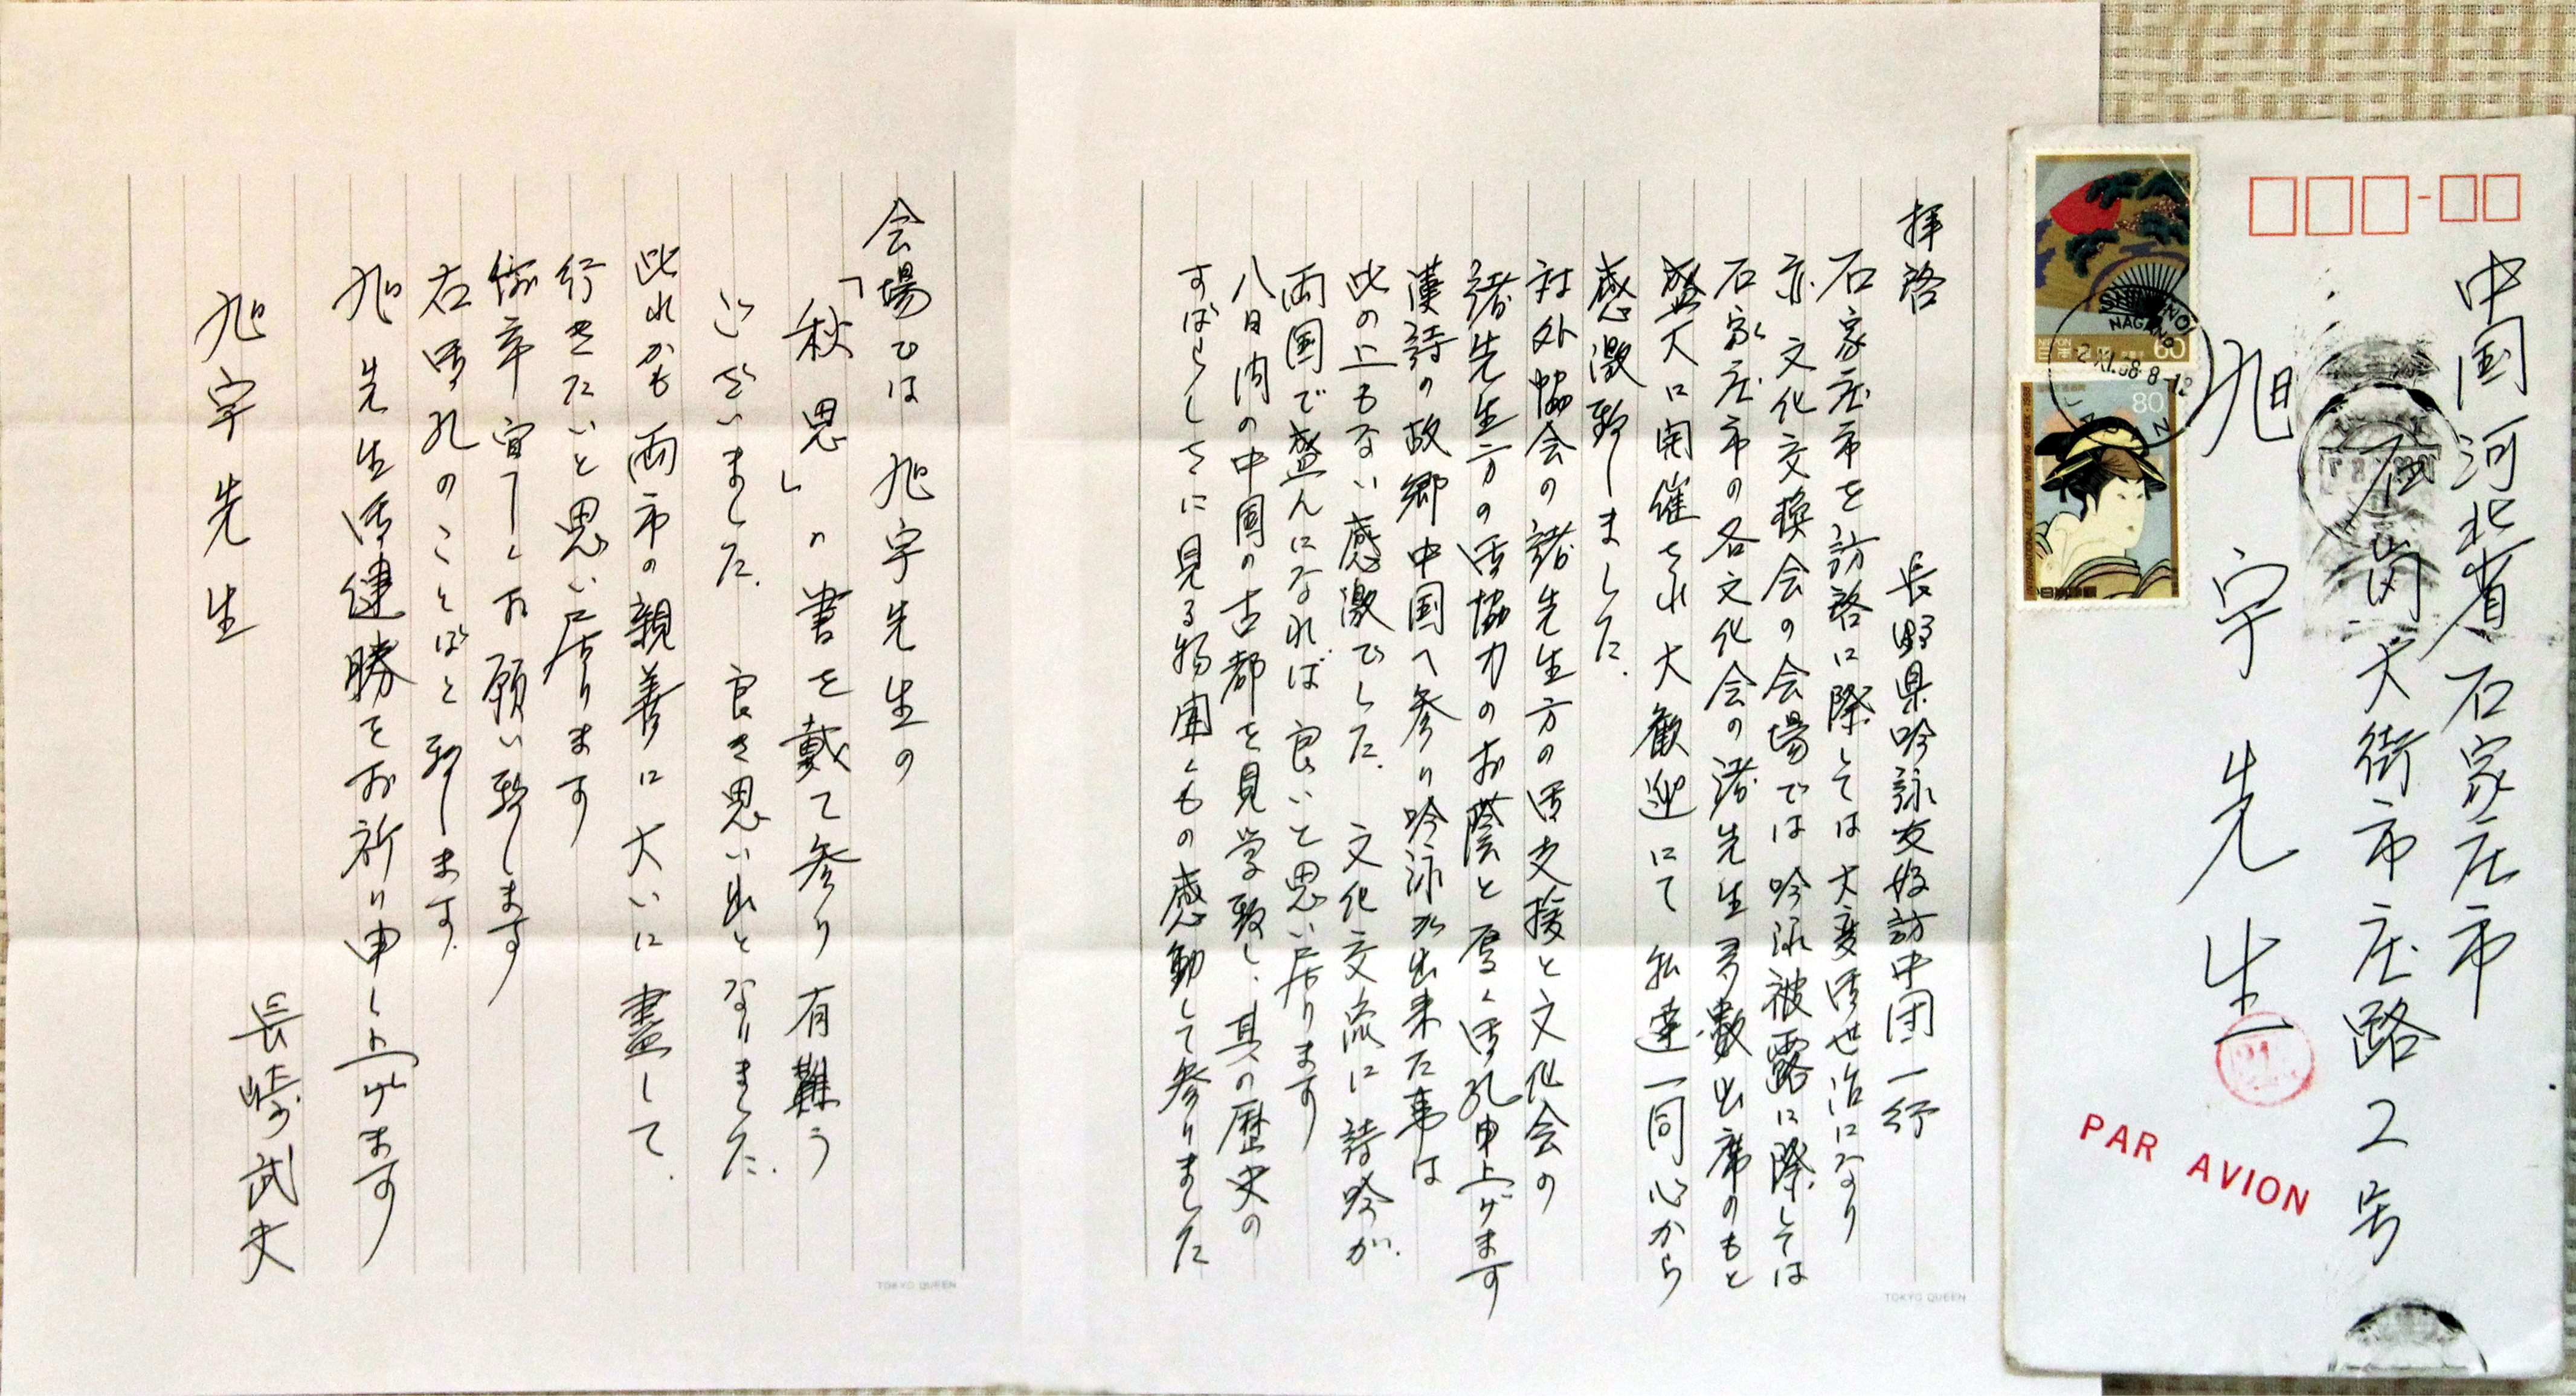 中国河北省石家庄市
石岗大街市庄路2号
旭宇先生
PAR AVION
NAGANO
NIPPON
60
80
拝啓
長野県吟詠友好訪中団一行
石家庄市を訪啓に際しては大変御世治になり
亦文化交換会の会場では吟詠被露に際しては
石家庄市の各文化会の諸先生多数出席のもと
盛大に開催され大歓迎にて私達一同心から
感激致しました.
対外協会の諸先生方の御支援と文化会の
諸先生方の御協力のお蔭と厚く御礼申上げます
漢詩の故郷中国へ参り吟詠が出来た事は
此の上もない感激でした.文化交流に詩吟が
両国で盛んになれば良いと思い居ります
八日间の中国の古都を見学致し、其の歴史の
すばらしさに見る物聞くもの感動して参りました
TOKYO QUEEN
会場では旭宇先生の
「秋思」の書を戴て参り有難う
ございました.良き思い出となりました.
此れかも両市の親善に大いに盡して.
行きたいと思い居ります
何卒宜しくお願い致します
右御礼のことばと致します.
旭先生御健勝をお祈り申し上げます
長崎武夫
旭宇先生
TOKYO QUEEN